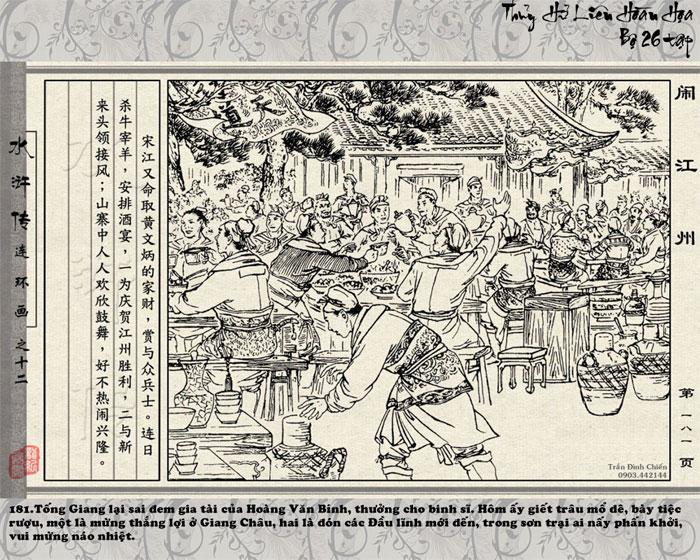 Thủy Hử Liên Hoàn Họa
Bộ 26 tập
闹江州
宋江又命取黄文炳的家财，赏与众兵士。连日
杀牛宰羊，安排酒宴，一为庆贺江州胜利，二与新
来头领接风；山寨中人人欢欣鼓舞，好不热闹兴隆。
水浒传连环画之十二
天道
第一八一页
Trần Đình Chiến
0903.442144
181.Tống Giang lại sai đem gia tài của Hoàng Văn Bỉnh, thưởng cho binh sĩ. Hôm ấy giết trâu mổ dê, bày tiệc
rượu, một là mừng thắng lợi ở Giang Châu, hai là đón các Đầu lĩnh mới đến, trong sơn trại ai nấy phấn khởi,
vui mừng náo nhiệt.